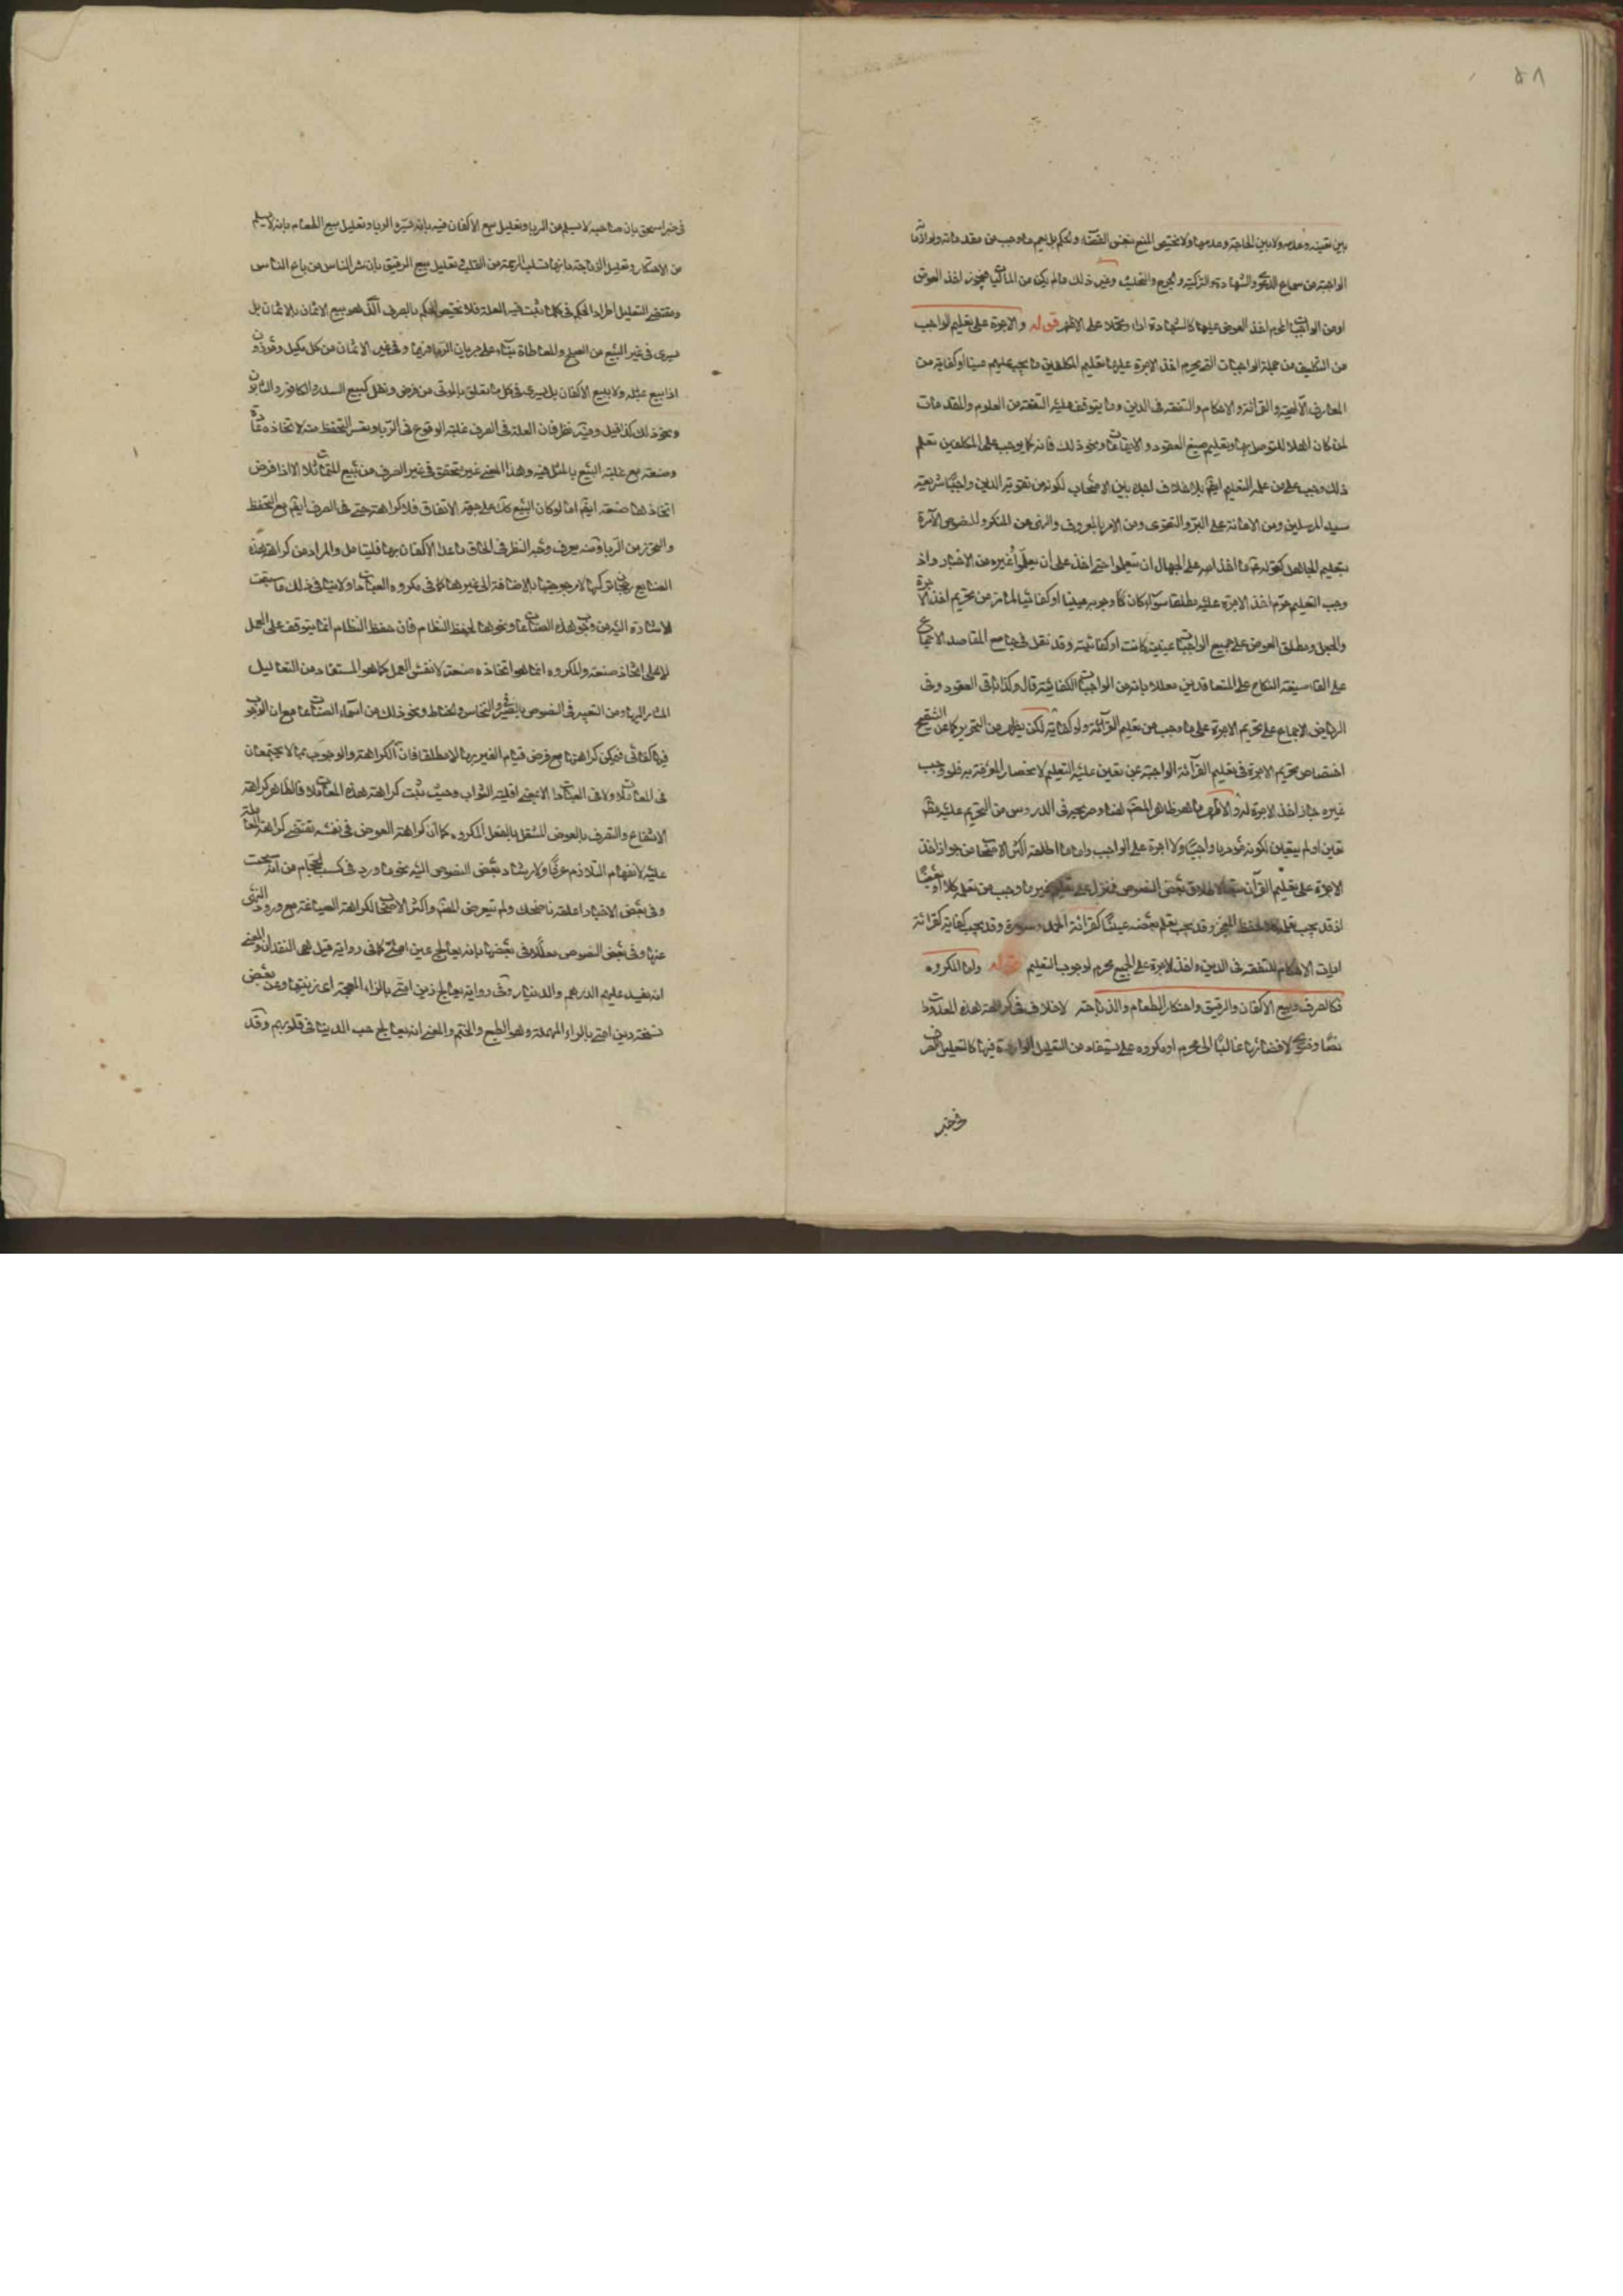 ٥٨
بين تعينه وعدمه ولا بين الحاجة وعدمها ولا يختص المنع بنفس القضاء والحكم بل يعم ما وجب من مقدماته ولوازمه
الواجبة من سماع الدعوى والشهادة والتزكية والجرح والتحليف وغير ذلك مما لم يكن من المالكيات فيجوز اخذ العوض
او من الواجبات المحرم اخذ العوض عليها كالشهادة اداء وتحملا على الاظهر قوله والاجرة على تعليم الواجب
من التكليف من جملة الواجبات التي يحرم اخذ الاجرة عليها تعليم المكلفين ما يجب عليهم عينا او كفاية من
المعارف الآلهية والقرائة والاحكام والتفقه في الدين وما يتوقف عليه التفقه من العلوم والمقدمات
لمن كان اهلا للتوصل بها وتعليم صيغ العقود والايقاعات ونحو ذلك فانه كما يوجب على المكلفين تعلم
ذلك وجب على من علم التعليم ايضا بلا خلاف اجده بين الاصحاب لكونه من تقوية الدين واحياء شريعة
سيد المرسلين ومن الاعانة على البر والتقوى ومن الامر بالمعروف والنهي عن المنكر وللنصوص الآمرة
بتعليم الجاهل كقوله ما اخذ الله على الجهال ان يتعلموا حتى اخذ على ان يعلموا غيره من الاخبار واذ
وجب التعليم حرم اخذ الاجرة عليه مطلقا سواء كان وجوبه عينيا او كفائيا لما مر من تحريم اخذ الاجرة
والجعل ومطلق العوض على جميع الواجبات عينية كانت او كفائية وقد نقل في جامع المقاصد الاجماع
على القاء صيغة النكاح على المتعاقدين معللا بانه من الواجبات الكفائية قال وكذا باقي العقود وفي
الرياض الاجماع على تحريم الاجرة على ما وجب من تعليم القرائة ولو كفاية لكن يظهر من التحرير كما عن التنقيح
اختصاص تحريم الاجرة في تعليم القرائة الواجبة عن تعين عليه التعليم لانحصار المعرفة به فلو وجب
غيره جاز اخذ الاجرة له والاظهر ما هو ظاهر المتن هنا وصريحه في الدروس من التحريم عليه مطلقا
تعين او لم يتعين لكونه مؤديا واجبا ولا اجرة على الواجب واما ما اطلقه اكثر الاصحاب من جواز اخذ
الاجرة على تعليم القرآن تبعا لاطلاق بعض النصوص فمنزل على تعليم غير ما وجب من تعلمه كلا او بعضا
اذ قد يجب تعلم لحفظ المعجز وقد يجب تعلم بعضه عينا كقرائة الحمد وسورة وقد يجب كفاية كقرائة
آيات الاحكام للتفقه في الدين واخذ الاجرة على الجميع محرم لوجوب التعليم قوله واما المكروه
فكالصرف وبيع الاكفان والرقيق واحتكار الطعام والذباحة لا خلاف في كراهة هذه المعدودات
نصا وفتوى لافضائها غالبا الى محرم او مكروه على ما يستفاد من التعليل الوارد فيها كالتعليل الصرف
في خبر
في خبر اسحق بان صاحبه لا يسلم من الربا وتعليل بيع الاكفان فيه بانه يسره الوباء وتعليل بيع الطعام بانه لا يسلم
من الاحتكار وتعليل الذباحة بانها تسلب الرحمة من القلب وتعليل بيع الرقيق بان شر الناس من باع الناس
ومقتضى التعليل اطراد الحكم في كلما ثبت فيه العلة فلا يختص الحكم بالصرف الذي هو بيع الاثمان بالاثمان بل
يسرى في غير البيع من الصلح والمعاطاة بناء على جريان الربا فيها وفي غير الاثمان من كل مكيل وموزون
اذا بيع بمثله ولا ببيع الاكفان بل يسرى في كل ما يتعلق بالموتى من فرض ونفل كبيع السدر والكافور والتابوت
ونحو ذلك كذا قيل وفيه نظر فان العلة في الصرف غلبة الوقوع في الربا وعسر التحفظ منه لاتخاذه عادة
وصنعة مع غلبة البيع بالمثل فيه وهذا المعنى غير متحقق في غير الصرف من بيع المتماثلات الا اذا فرض
اتخاذها صنعة ايضا اما لو كان البيع كذلك على جهة الاتفاق فلا كراهة حتى في الصرف ايضا مع التحفظ
والتحرز من الربا ومنه يعرف وجه النظر في الحاق ما عدا الاكفان بها فليتامل والمراد من كراهة هذه
الصنايع رجحان تركها لا مرجوحيتها بالاضافة الى غيرها كما في مكروه العبادات ولا ينافي ذلك ما سبقت
الاشارة اليه من وجوب هذه الصناعات ونحوها لحفظ النظام فان حفظ النظام انما يتوقف على العمل
لا على اتخاذ صنعة والمكروه انما هو اتخاذه صنعة لا نفس العمل كما هو المستفاد من التعاليل
المشار اليها ومن التعبير في النصوص بالصيرفي والنخاس والحناط ونحو ذلك من اسماء الصناعات مع ان الوجوب
فيها كفائي فيمكن كراهتها مع فرض قيام الغير بها لا مطلقا فان الكراهة والوجوب مما لا يجتمعان
في المعاملات ولا في العبادات الا بمعنى اقلية الثواب وحيث ثبت كراهة هذه المعاملات فالظاهر كراهة
الانتفاع والتصرف بالعوض المنتقل بالفعل المكروه كما ان كراهة العوض في نفسه تقتضي كراهة المعاملة
عليه لانفهام التلازم عرفا ولارشاد بعض النصوص اليه نحو ما ورد في كسب الحجام من انه سحت
وفي بعض الاخبار اعلفه ناضحك ولم يتعرض المصنف واكثر الاصحاب لكراهة الصياغة مع ورود النهي
عنها وفي بعض النصوص معللا في بعضها بانه يعالج غين امتي كما في رواية قيل هي النقدان والمعنى
انه يفسد عليهم الدرهم والدينار وفي رواية يعالج زين امتي بالزاء المعجمة اي زينتها وعن بعض
نسخة رين امتي بالراء المهملة وهو الطبع والختم والمعنى انه يعالج حب الدينا في قلوبهم وقد